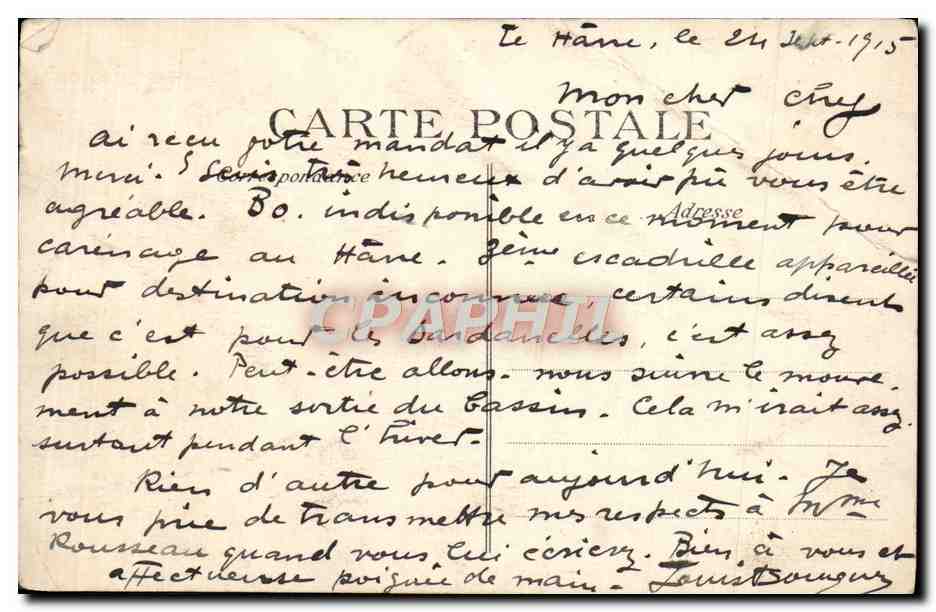 Le Hâvre, le 24 Sept. 1915
Mon cher
CARTE POSTALE
ai reçu votre mandat il y a quelques jours.
Merci. Suis très heureux d'avoir pu vous être
Correspondance
agréable. Bo. indisponible en ce moment pour
Adresse
carénage au Hâvre. 3ème escadrille appareillée
pour destination inconnue, certains disent
CPAPHIL
que c'est pour les Dardanelles, c'est assez
possible. Peut-être allons-nous suivre le mouve-
ment à notre sortie du bassin. Cela m'irait assez
surtout pendant l'hiver.
Rien d'autre pour aujourd'hui. Je
vous prie de transmettre mes respects à Mme
Rousseau quand vous lui écrirez. Bien à vous et
affectueuse poignée de main. Louis